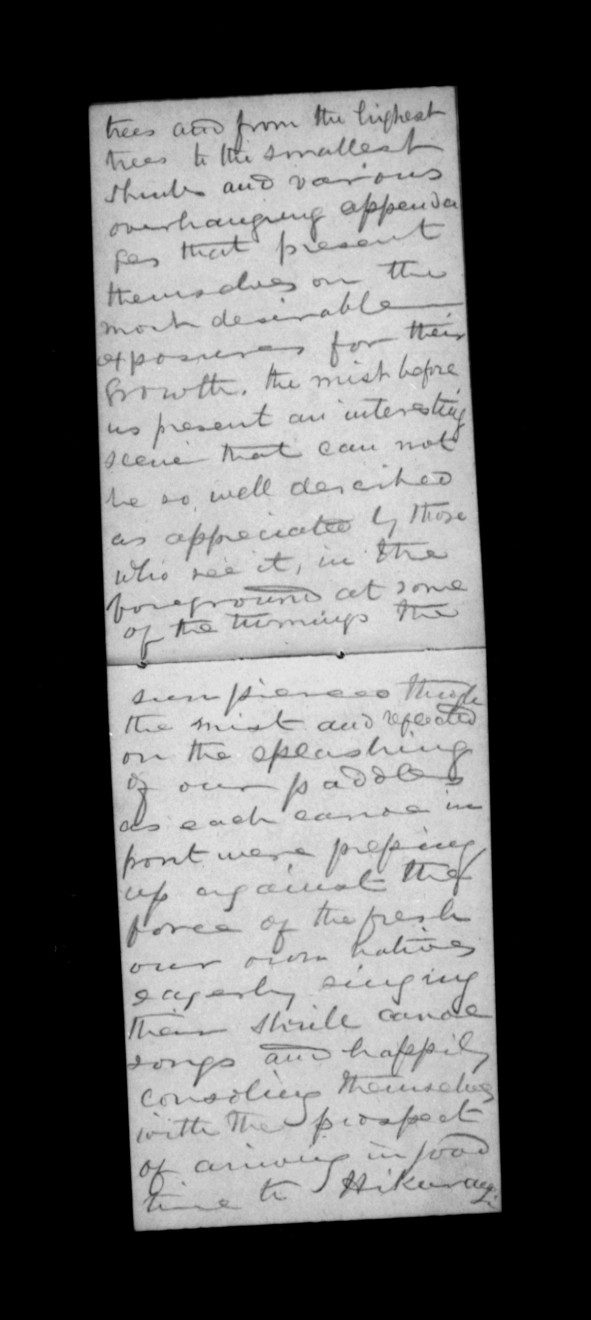 trees and from the highest
trees to the smallest
shrubs and various
overhanging appenda
ges that present
themselves on the
most desirable
exposures for their
growth. the mist before
us present an interesting
scene that can not
be so well described
as appreciated by those
who see it, in the
foreground at some
of the turnings the
sun pierces though
the mist and reflected
on the spclashing
of our paddles
as each canoe in
front were
up against the
force of the fresh
our own natives
eagerly singing
their shrill canoe
songs and happily
consoling themselves
with the prospect
of arriving in good
time to Hikurangi